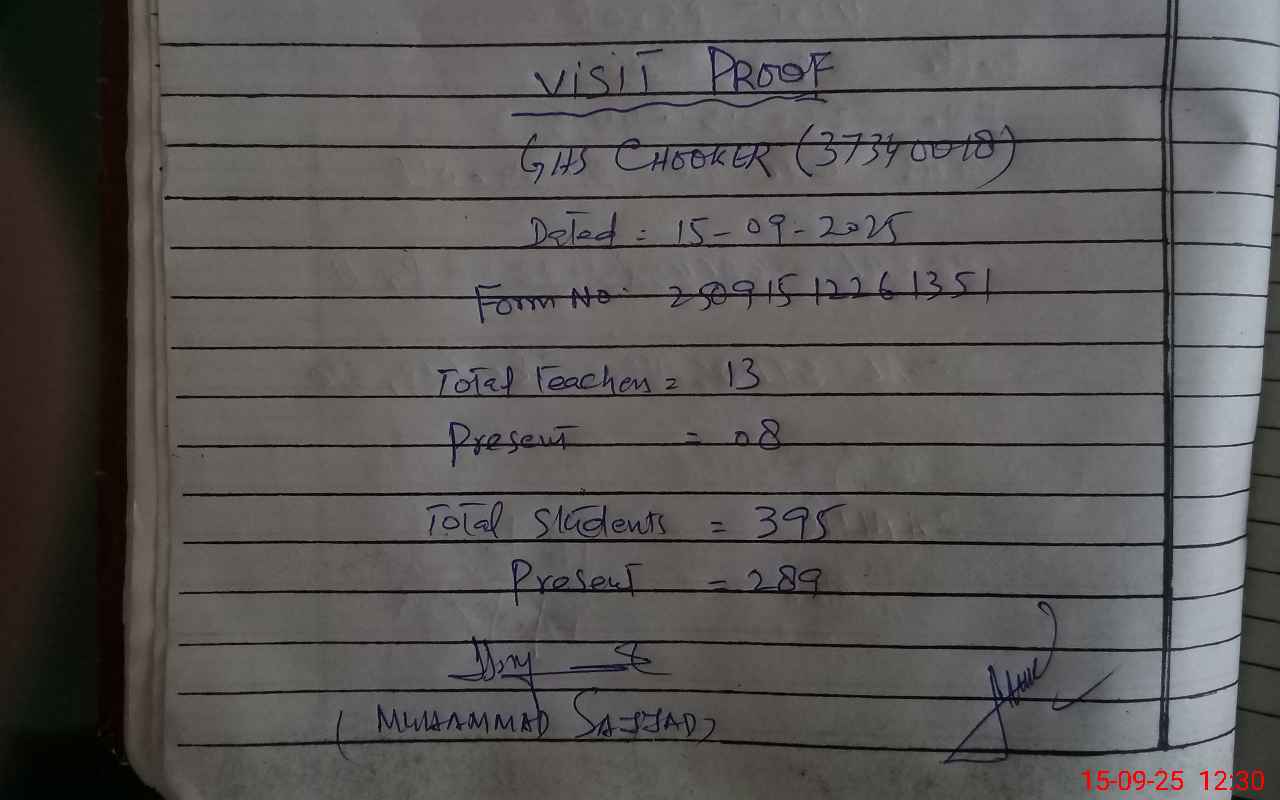 VISIT PROOF
GHS CHOOKER (37340018)
Dated = 15-09-2025
Form No. 250915122261351
Total Teachers = 13
Present = 08
Total Students = 395
Present = 289
(MUHAMMAD SAJJAD)
15-09-25 12:30